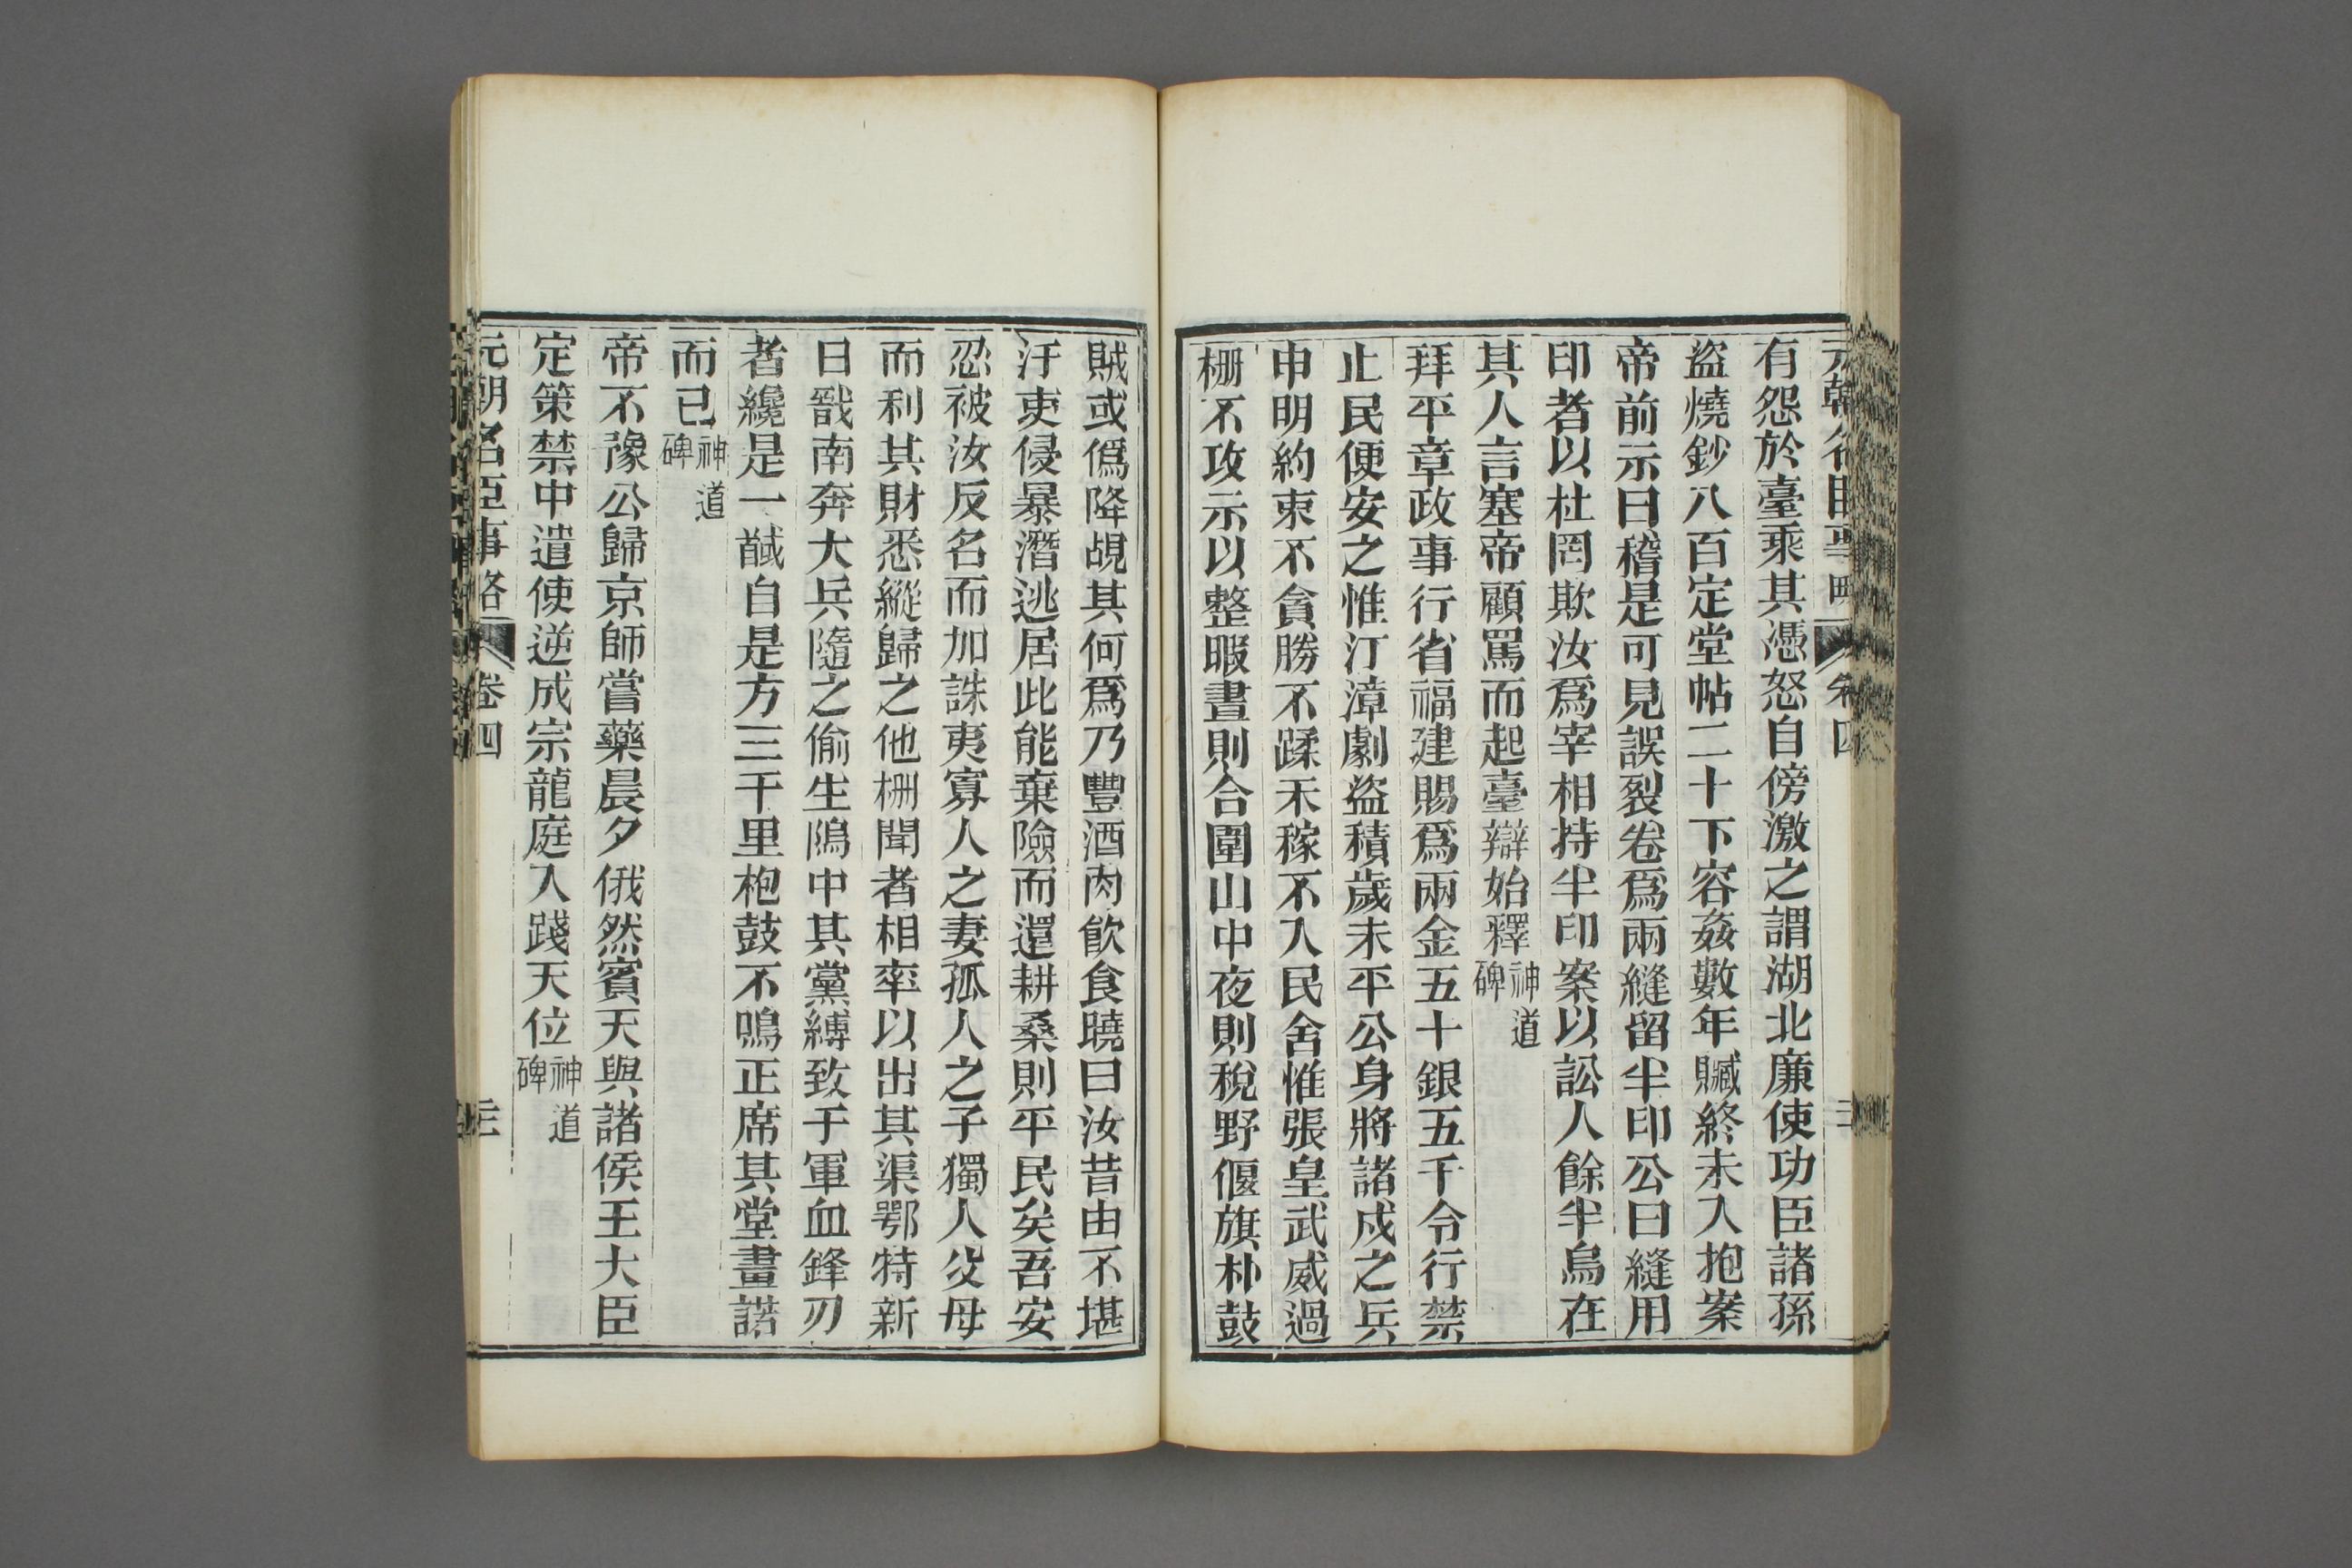 有怨於臺乘其憑怒自傍激之謂湖北廉使功臣諸孫
盜燒鈔八百定堂帖二十下容姦數年贓終未入抱案
帝前示曰稽是可見誤裂卷爲兩縫留半印公曰縫用
印者以杜罔欺汝爲宰相持半印案以訟人餘半烏在
其人言塞帝顧罵而起臺辯始釋神道碑
拜平章政事行省福建賜爲兩金五十銀五千令行禁
止民便安之惟汀漳劇盜積歲未平公身將諸戍之兵
申明約束不貪勝不蹂禾稼不入民舍惟張皇武威過
柵不攻示以整暇晝則合圍山中夜則稅野偃旗朴鼓
賊或僞降覘其何爲乃豐酒肉飮食曉曰汝昔由不堪
汙吏侵暴潛逃居此能棄險而還耕桑則平民矣吾安
忍被汝反名而加誅夷寡人之妻孤人之子獨人父母
而利其財悉縱歸之他柵聞者相率以出其渠鄂特新
日戩南奔大兵隨之偷生隖中其黨縛致于軍血鋒刃
者纔是一馘自是方三千里枹鼓不鳴正席其堂畫諾
而已神道碑
帝不豫公歸京師嘗藥晨夕俄然賓天與諸侯王大臣
定策禁中遣使逆成宗龍庭入踐天位神道碑
元朝名臣事略 卷四 三